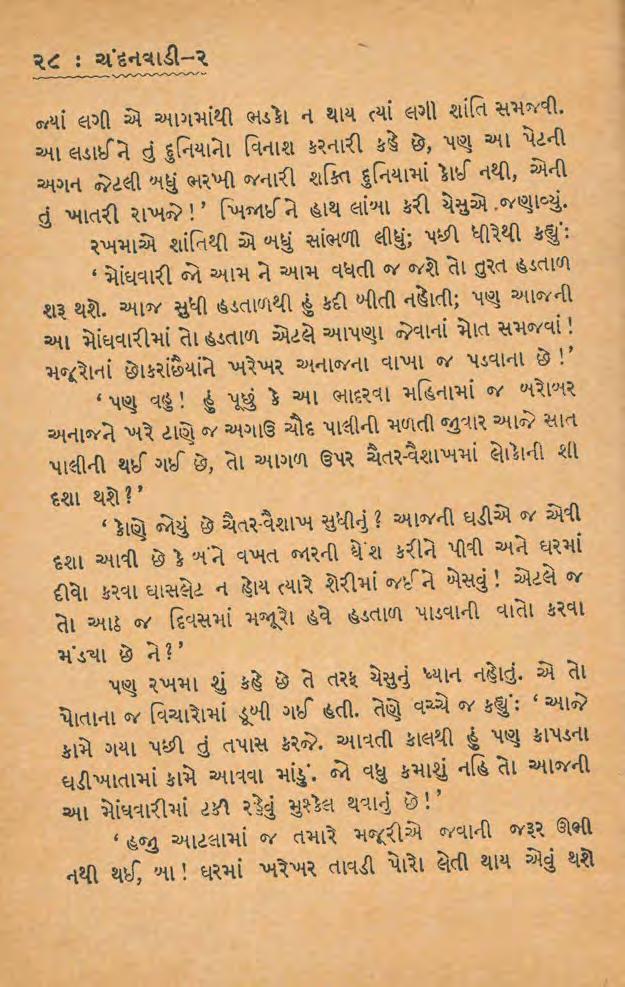 ૨૮ : ચંદનવાડી–૨
જ્યાં લગી એ આગમાંથી ભડકો ન થાય ત્યાં લગી શાંતિ સમજવી.
આ લડાઈને તું દુનિયાનો વિનાશ કરનારી કહે છે, પણ આ પેટની
અગન જેટલી બધું ભરખી જનારી શક્તિ દુનિયામાં કોઈ નથી, એની
તું ખાતરી રાખજે!’ ખિજાઈને હાથ લાંબા કરી યેસુએ જણાવ્યું.
રખમાએ શાંતિથી એ બધું સાંભળી લીધું; પછી ધીરેથી કહ્યું:
‘મોંઘવારી જો આમ ને આમ વધતી જ જશે તો તુરત હડતાળ
શરૂ થશે. આજ સુધી હડતાળથી હું કદી બીતી નહોતી; પણ આજની
આ મોંઘવારીમાં તો હડતાળ એટલે આપણા જેવાનાં મોત સમજવાં!
મજૂરોનાં છોકરાંછૈયાંને ખરેખર અનાજના વાખા જ પડવાના છે!’
‘પણ વહુ! હું પૂછું કે આ ભાદરવા મહિનામાં જ બરોબર
અનાજને ખરે ટાણે જ અગાઉ ચૌદ પાલીની મળતી જુવાર આજે સાત
પાલીની થઈ ગઈ છે, તો આગળ ઉપર ચૈતર-વૈશાખમાં લોકોની શી
દશા થશે?’
‘કોણે જોયું છે ચૈતર-વૈશાખ સુધીનું? આજની ઘડીએ જ એવી
દશા આવી છે કે બંને વખત જારની ઘેંશ કરીને પીવી અને ઘરમાં
દીવો કરવા ઘાસલેટ ન હોય ત્યારે શેરીમાં જઈને બેસવું! એટલે જ
તો આઠ જ દિવસમાં મજૂરો હવે હડતાળ પાડવાની વાતો કરવા
મંડ્યા છે ને?’
પણ રખમા શું કહે છે તે તરફ યેસુનું ધ્યાન નહોતું. એ તો
પોતાના જ વિચારોમાં ડૂબી ગઈ હતી. તેણે વચ્ચે જ કહ્યું: ‘આજે
કામે ગયા પછી તું તપાસ કરજે. આવતી કાલથી હું પણ કાપડના
ઘડીખાતામાં કામે આવવા માંડું. જો વધુ કમાશું નહિ તો આજની
આ મોંઘવારીમાં ટકી રહેવું મુશ્કેલ થવાનું છે!’
‘હજુ આટલામાં જ તમારે મજૂરીએ જવાની જરૂર ઊભી
નથી થઈ, બા! ઘરમાં ખરેખર તાવડી પોરો લેતી થાય એવું થશે